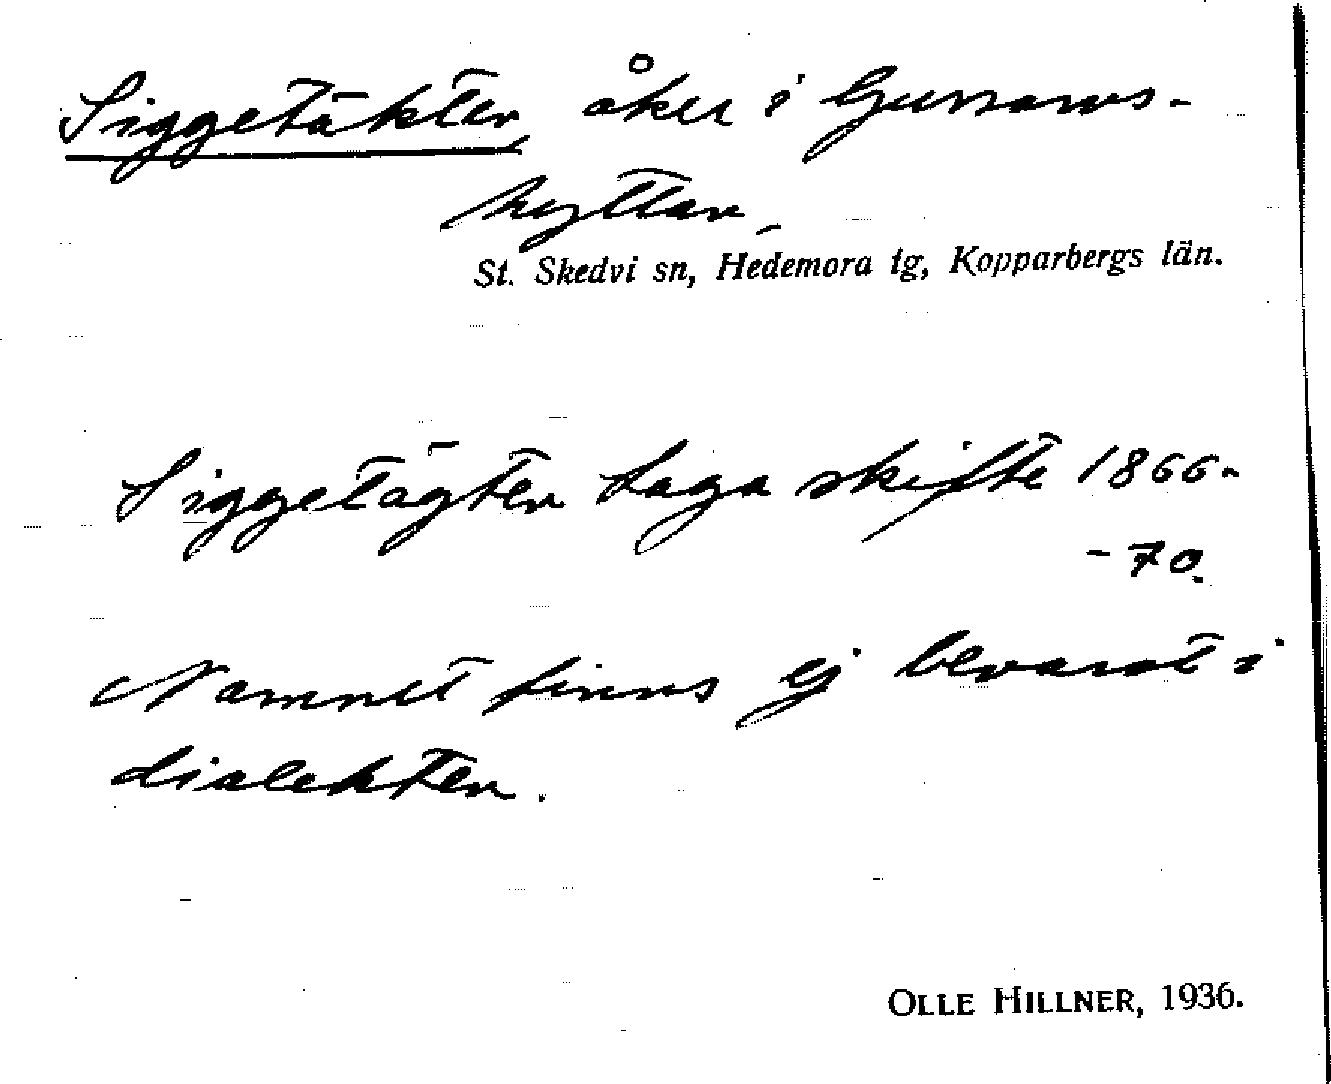 Siggetäkten, åker i Gussarvs-
hyttan,
St. Skedvi sn, Hedemora tg, Kopparbergs län.
Siggetägten Laga skifte 1866-
-70.
Namnet finns ej bevarat i
dialekten.
OLLE HILLNER, 1936.